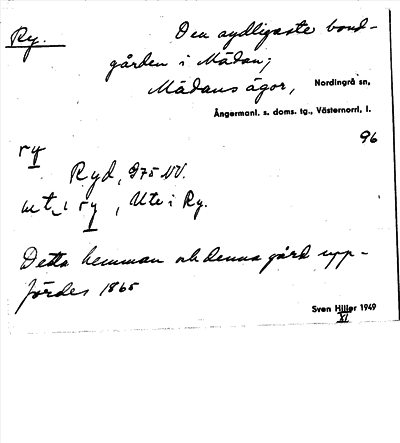 Ry.
Den sydligaste bond-
gården i Mädan;
Mädans ägor, Nordingrå sn,
Ångermanl. s. doms. tg., Västernorrl, l.
96
ry
Ryd, 975 NV.
ut i ry, Ute i Ry.
Detta hemman och denna gård upp-
fördes 1865
Sven Hiller 1949
XI